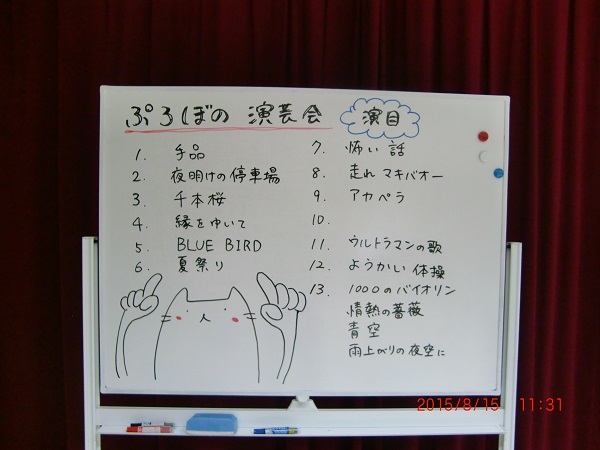 ぷろぼの 演芸会
演目
1. 手品
2. 夜明けの停車場
3. 千本桜
4. 縁をゆいて
5. BLUE BIRD
6. 夏祭り
7. 怖い話
8. 走れマキバオー
9. アカペラ
10.
11. ウルトラマンの歌
12. ようかい体操
13. 1000のバイオリン
情熱の薔薇
青空
雨上がりの夜空に
2015/8/15 11:31